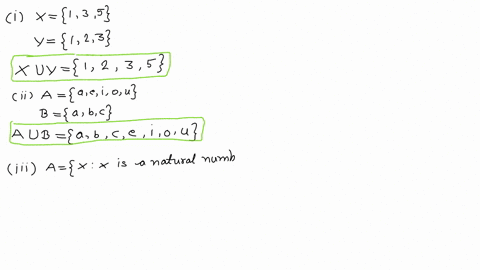 (i) X={1,3,5}
Y={1,2,3}
X∪Y={1, 2, 3, 5}
(ii) A={a,e,i,o,u}
B={a,b,c}
A∪B={a,b,c,e,i,o,u}
(iii) A={x:x is a natural numb